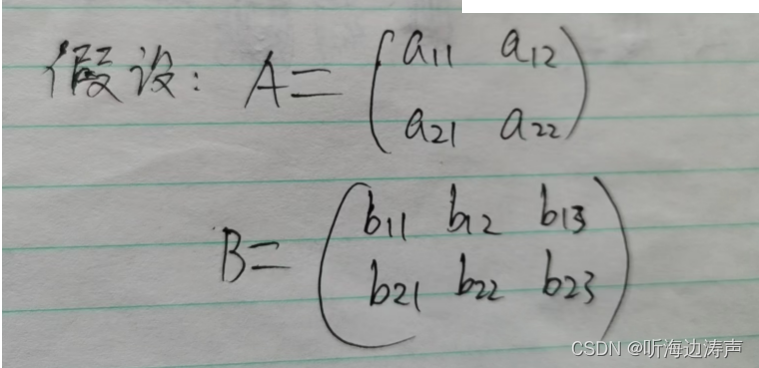 假设: A= (a11 a12
a21 a22)
B= (b11 b12 b13
b21 b22 b23)
CSDN @听海边涛声